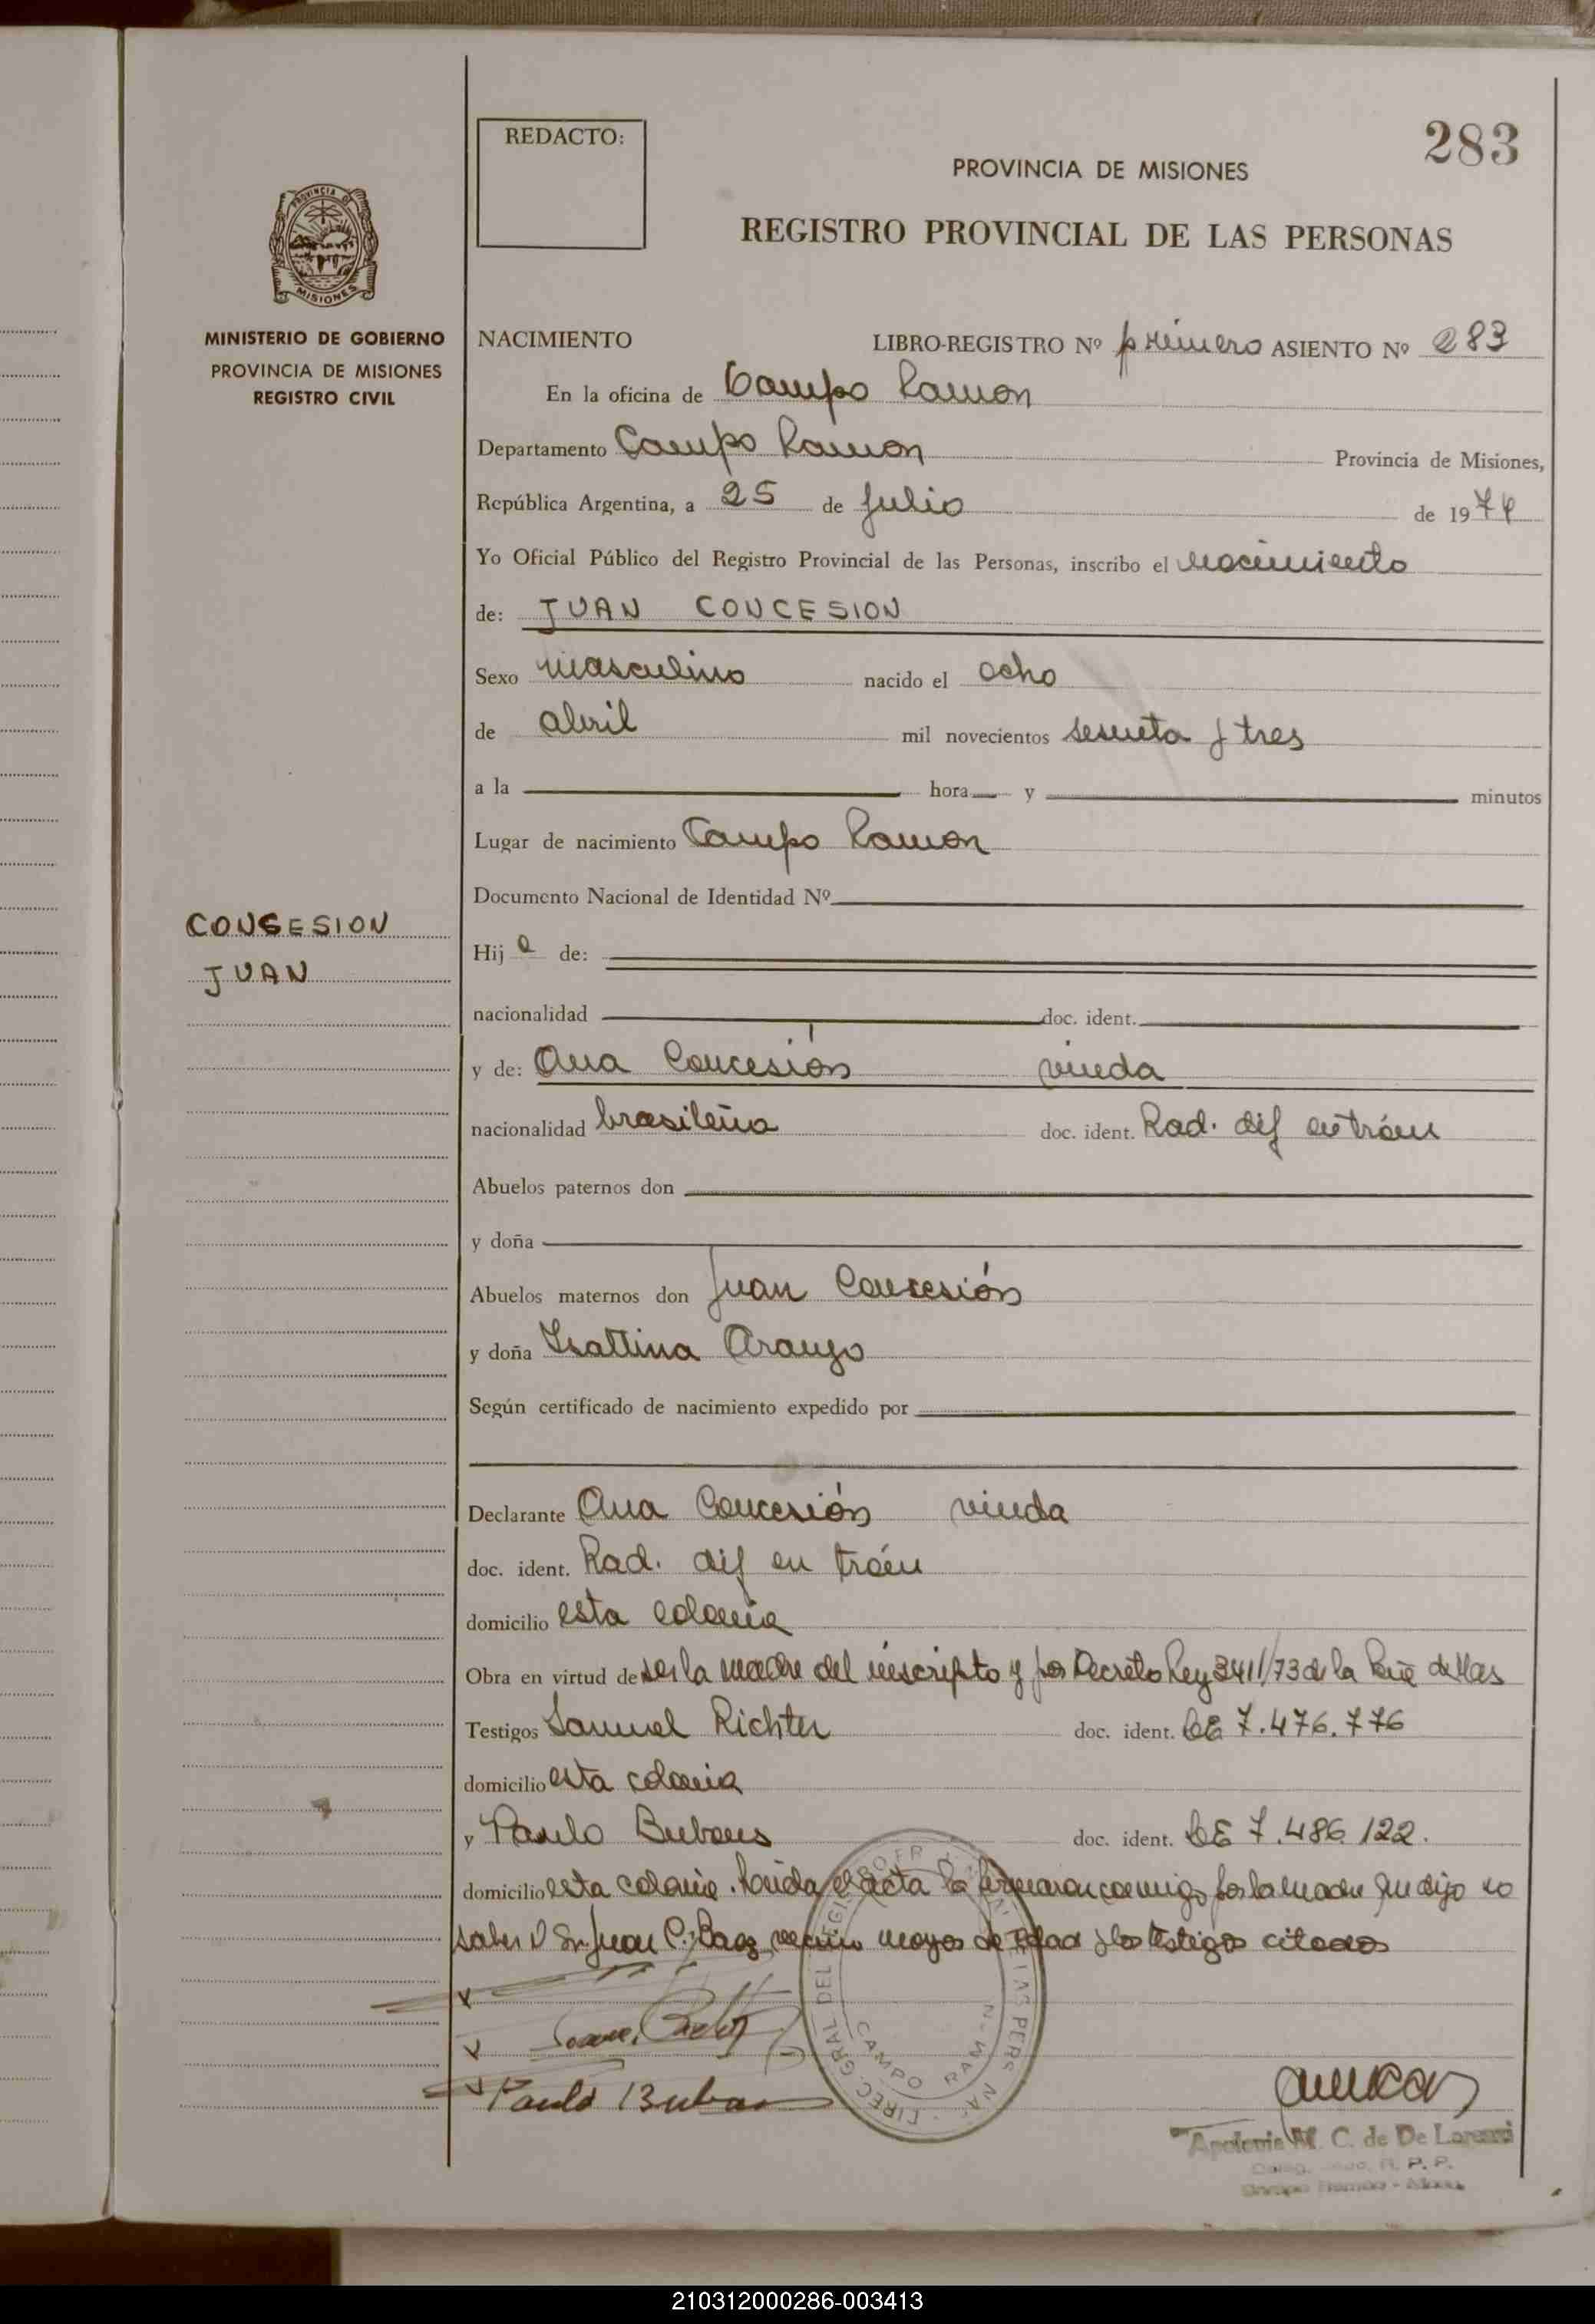 283
REDACTO:
PROVINCIA DE MISIONES
REGISTRO PROVINCIAL DE LAS PERSONAS
PROVINCIA DE
MISIONES
MINISTERIO DE GOBIERNO
PROVINCIA DE MISIONES
REGISTRO CIVIL
NACIMIENTO LIBRO-REGISTRO Nº primero ASIENTO Nº 283
En la oficina de Campo Ramon
Departamento Campo Ramon Provincia de Misiones,
República Argentina, a 25 de Julio de 1974
Yo Oficial Público del Registro Provincial de las Personas, inscribo el nacimiento
de: JUAN CONCESION
Sexo masculino nacido el ocho
de abril mil novecientos sesenta y tres
a la hora y minutos
Lugar de nacimiento Campo Ramon
Documento Nacional de Identidad Nº
CONSESION
JUAN
Hij o de:
nacionalidad doc. ident.
y de: Ana Concesión viuda
nacionalidad brasileña doc. ident. Rad. dif en trám
Abuelos paternos don
y doña
Abuelos maternos don Juan Concesión
y doña Araujo
Según certificado de nacimiento expedido por
Declarante Ana Concesión viuda
doc. ident. Rad. dif en trám
domicilio esta colonia
Obra en virtud de ser la madre del inscripto y por Decreto Ley 3411/73 de la
Testigos Samuel Richter doc. ident. 7.476.776
domicilio esta colonia
y Paulo Bubans doc. ident. 7.486.122.
domicilio esta colonia. Leida el acta la firmaran conmigo por la madre que dijo no
saber Sr. Juan C. vecino mayor de edad y los testigos citados
x
x
Paulo Buban
DIREC. GRAL DEL REGISTRO PER LAS PERSONAS
CAMPO RAMON
Apolonia M. C. de De Lorenzi
R. P. P.
Campo Ramon -
210312000286-003413